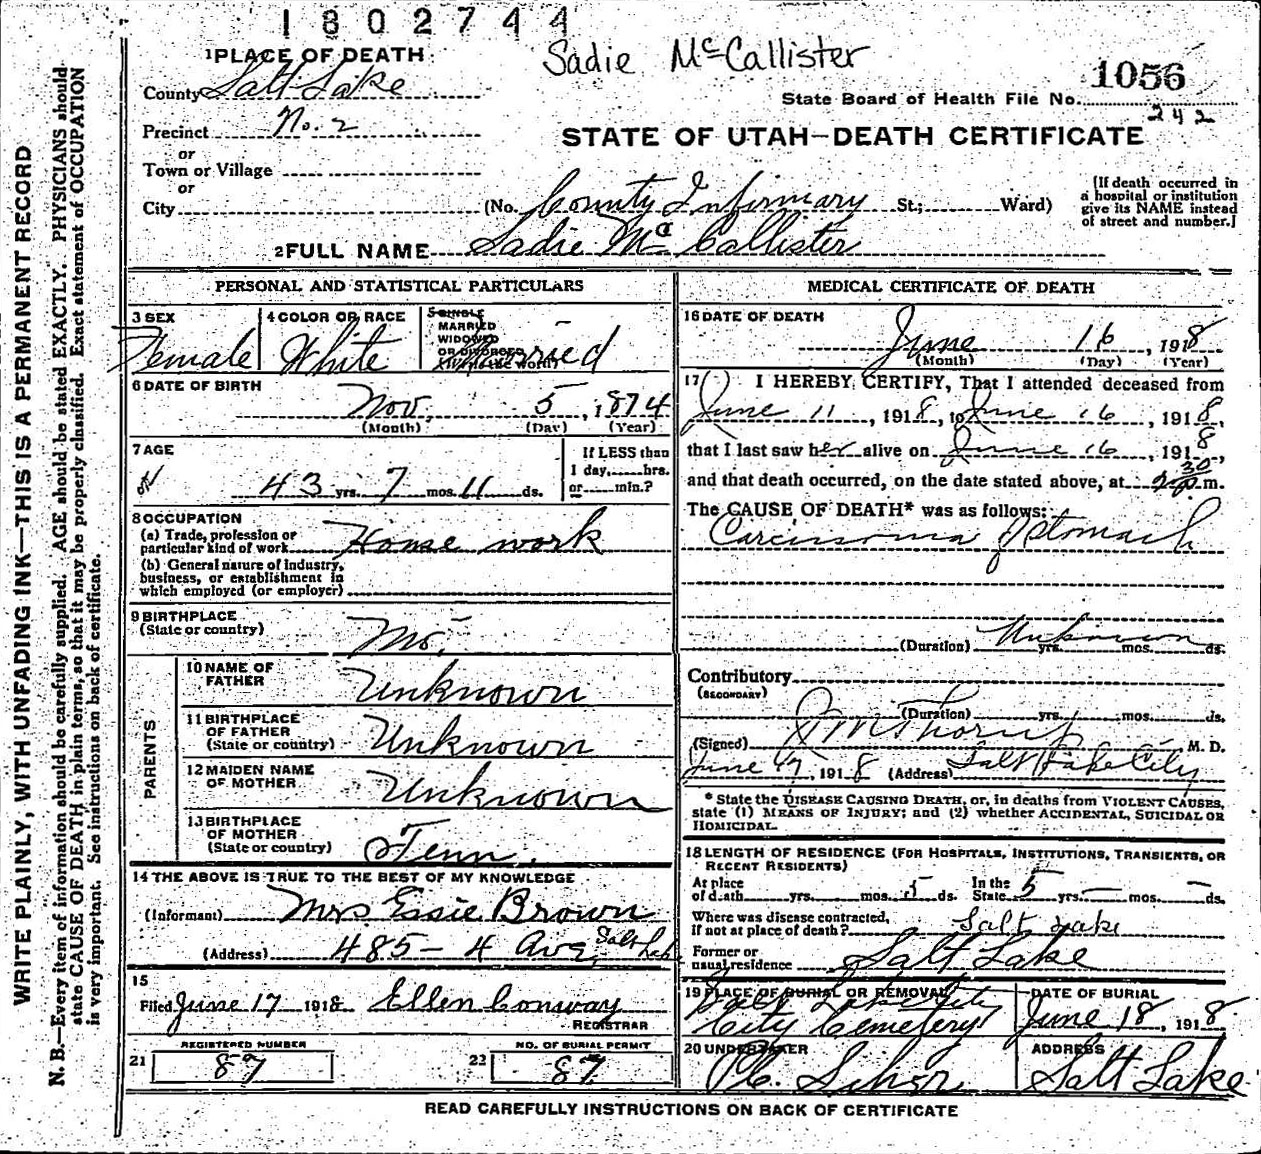 1802744
Sadie McCallister
1056
State Board of Health File No.
242
STATE OF UTAH—DEATH CERTIFICATE
1 PLACE OF DEATH
County Salt Lake
Precinct No. 2
or
Town or Village
or
City (No. County Infirmary St.; Ward)
[If death occurred in a hospital or institution give its NAME instead of street and number.]
2 FULL NAME Sadie Mc Callister
WRITE PLAINLY, WITH UNFADING INK—THIS IS A PERMANENT RECORD
N. B.—Every item of information should be carefully supplied. AGE should be stated EXACTLY. PHYSICIANS should
state CAUSE OF DEATH in plain terms, so that it may be properly classified. Exact statement of OCCUPATION
is very important. See instructions on back of certificate.
PERSONAL AND STATISTICAL PARTICULARS
3 SEX
Female
4 COLOR OR RACE
White
5 SINGLE
MARRIED
WIDOWED
OR DIVORCED
Married
6 DATE OF BIRTH
Nov. 5, 1874
(Month) (Day) (Year)
7 AGE
43 yrs. 7 mos. 11 ds.
If LESS than
1 day, hrs.
or min.?
8 OCCUPATION
(a) Trade, profession or
particular kind of work House work
(b) General nature of industry,
business, or establishment in
which employed (or employer)
9 BIRTHPLACE
(State or country) Mo.
PARENTS
10 NAME OF
FATHER Unknown
11 BIRTHPLACE
OF FATHER
(State or country) Unknown
12 MAIDEN NAME
OF MOTHER Unknown
13 BIRTHPLACE
OF MOTHER
(State or country) Tenn.
14 THE ABOVE IS TRUE TO THE BEST OF MY KNOWLEDGE
(Informant) Mrs Essie Brown
(Address) 485 - 4 Ave, Salt Lake
15
Filed June 17 1918 Ellen Conway
REGISTRAR
21 REGISTERED NUMBER
87
22 NO. OF BURIAL PERMIT
87
MEDICAL CERTIFICATE OF DEATH
16 DATE OF DEATH
June 16, 1918
(Month) (Day) (Year)
17 I HEREBY CERTIFY, That I attended deceased from
June 11, 1918, to June 16, 1918,
that I last saw her alive on June 16, 1918,
and that death occurred, on the date stated above, at 2 30 p.m.
The CAUSE OF DEATH* was as follows:
Carcinoma of Stomach
(Duration) Unknown yrs. mos. ds.
Contributory
(SECONDARY)
(Duration) yrs. mos. ds.
(Signed) Thorup M. D.
June 17, 1918 (Address) Salt Lake City
* State the DISEASE CAUSING DEATH, or, in deaths from VIOLENT CAUSES,
state (1) MEANS OF INJURY; and (2) whether ACCIDENTAL, SUICIDAL OR
HOMICIDAL.
18 LENGTH OF RESIDENCE (FOR HOSPITALS, INSTITUTIONS, TRANSIENTS, OR
RECENT RESIDENTS)
At place
of death yrs. mos. 5 ds. In the
State 5 yrs. — mos. — ds.
Where was disease contracted,
if not at place of death? Salt Lake
Former or
usual residence Salt Lake
19 PLACE OF BURIAL OR REMOVAL
Salt Lake City
City Cemetery
DATE OF BURIAL
June 18, 1918
20 UNDERTAKER
ADDRESS
Salt Lake
READ CAREFULLY INSTRUCTIONS ON BACK OF CERTIFICATE